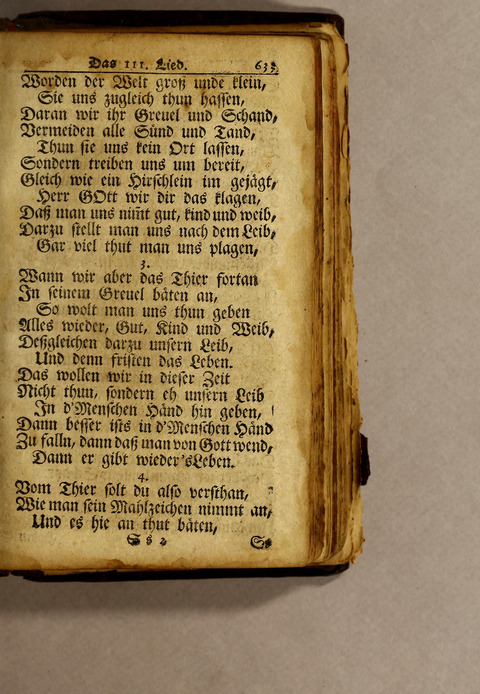 Das 111. Lied. 635
Worden der Welt groß unde klein,
Sie uns zugleich thun hassen,
Daran wir ihr Greuel und Schand,
Vermeiden alle Sünd und Tand,
Thun sie uns kein Ort lassen,
Sondern treiben uns um bereit,
Gleich wie ein Hirschlein im gejägt,
Herr GOtt wir dir das klagen,
Daß man uns nim̄t gut, kind und weib,
Darzu stellt man uns nach dem Leib,
Gar viel thut man uns plagen,
3.
Wann wir aber das Thier fortan
In seinem Greuel bäten an,
So wolt man uns thun geben
Alles wieder, Gut, Kind und Weib,
Deßgleichen darzu unsern Leib,
Und denn fristen das Leben.
Das wollen wir in dieser Zeit
Nicht thun, sondern eh unsern Leib
In d'Menschen Händ hin geben,
Dann besser ists in d'Menschen Händ
Zu falln, dann daß man von Gott wend,
Dann er gibt wieder'sLeben.
4.
Vom Thier solt du also versthan,
Wie man sein Mahlzeichen nimmt an,
Und es hie an thut bäten,
S s 2 So